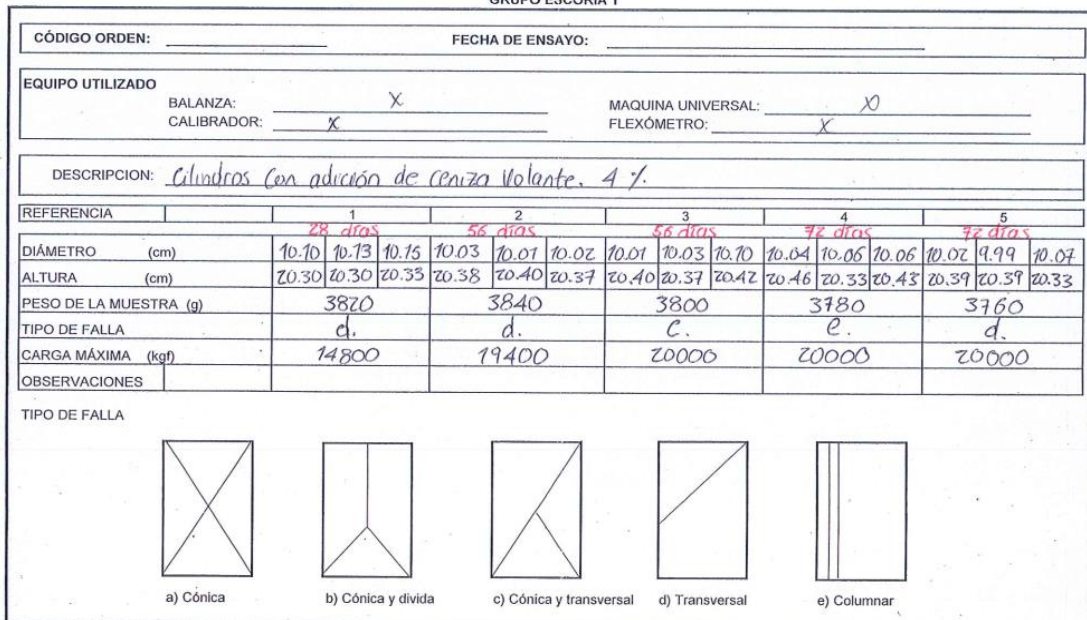 GRUPO ESCORIA 1
CÓDIGO ORDEN: FECHA DE ENSAYO:
EQUIPO UTILIZADO
BALANZA: X MAQUINA UNIVERSAL: X
CALIBRADOR: X FLEXÓMETRO: X
DESCRIPCION: Cilindros Con adición de Ceniza Volante. 4 %.
REFERENCIA 1 2 3 4 5
28 días 56 días 56 días 72 días 72 días
DIÁMETRO (cm) 10.10 10.13 10.15 10.03 10.01 10.02 10.01 10.03 10.10 10.04 10.06 10.06 10.02 9.99 10.07
ALTURA (cm) 20.30 20.30 20.33 20.38 20.40 20.37 20.40 20.37 20.42 20.46 20.33 20.43 20.39 20.39 20.33
PESO DE LA MUESTRA (g) 3820 3840 3800 3780 3760
TIPO DE FALLA d. d. c. e. d.
CARGA MÁXIMA (kgf) 14800 19400 20000 20000 20000
OBSERVACIONES
TIPO DE FALLA
a) Cónica b) Cónica y divida c) Cónica y transversal d) Transversal e) Columnar